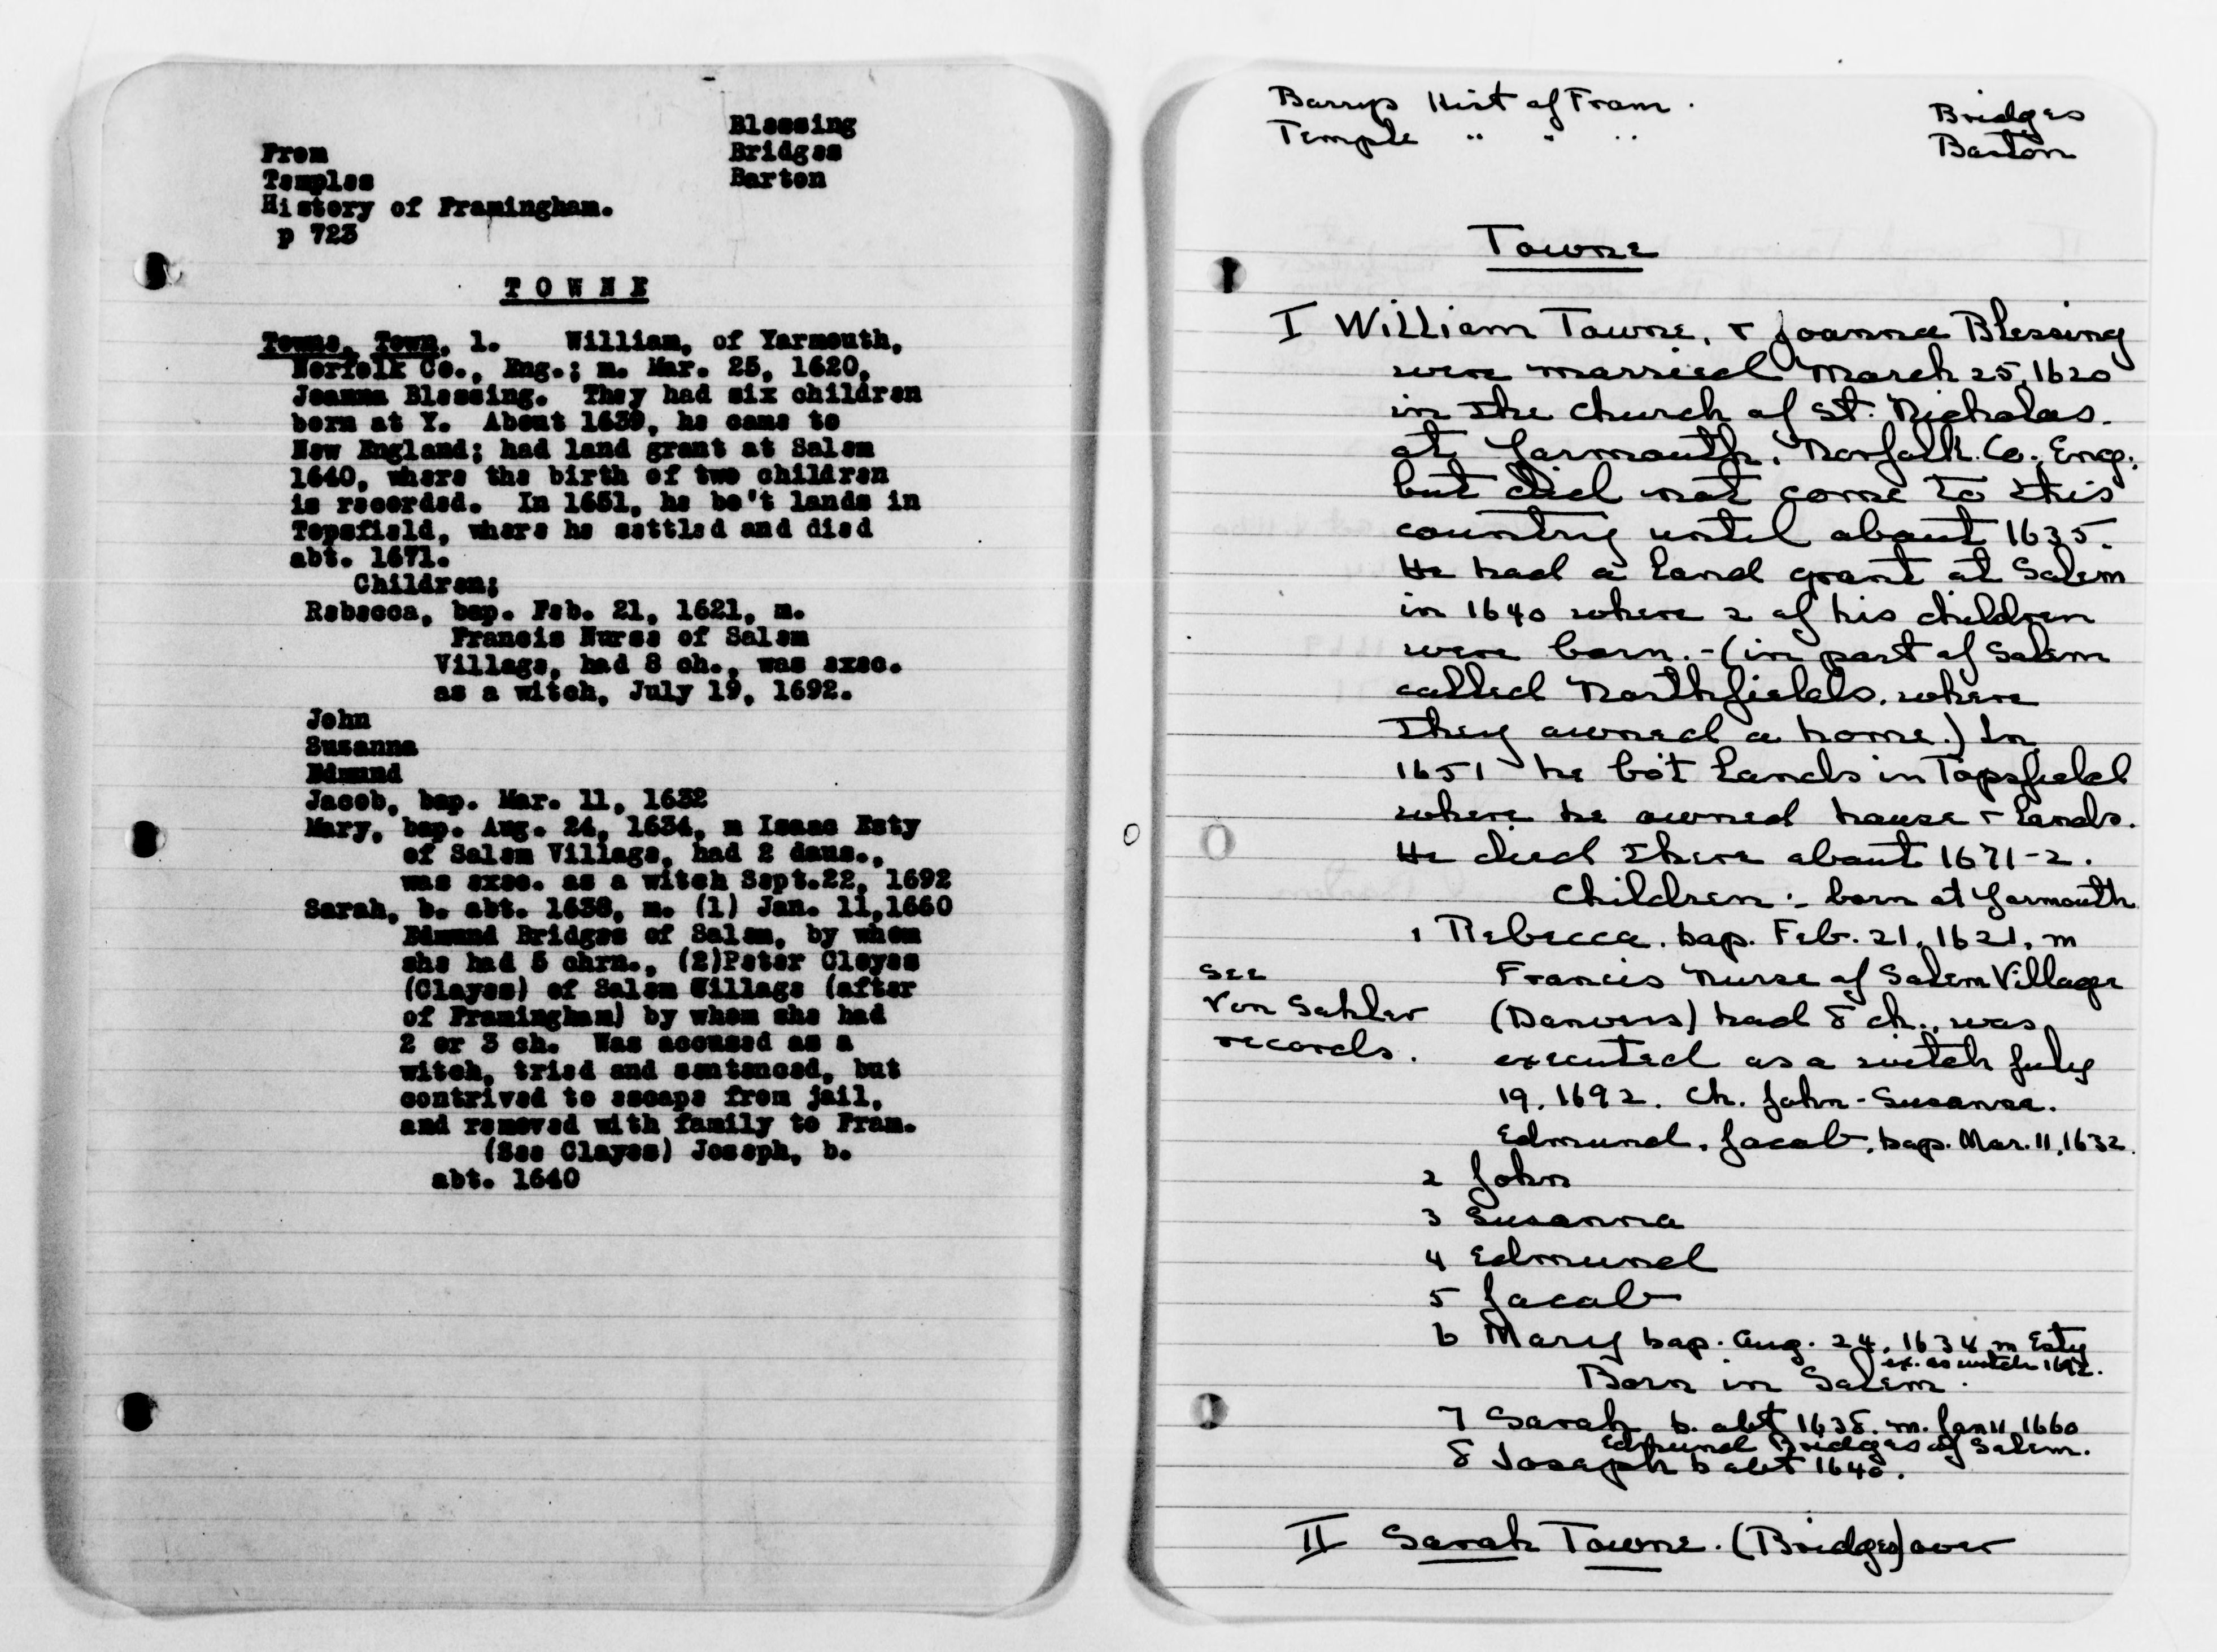 Blessing
Bridges
Barton
From
Temples
History of Framingham.
p 723
TOWNE
Towne, Town, 1. William, of Yarmouth,
Norfolk Co., Eng.; m. Mar. 25, 1620,
Joanna Blessing. They had six children
born at Y. About 1639, he came to
New England; had land grant at Salem
1640, where the birth of two children
is recorded. In 1651, he bo't lands in
Topsfield, where he settled and died
abt. 1671.
Children;
Rebecca, bap. Feb. 21, 1621, m.
Francis Nurse of Salem
Village, had 8 ch., was exec.
as a witch, July 19, 1692.
John
Susanna
Edmund
Jacob, bap. Mar. 11, 1632
Mary, bap. Aug. 24, 1634, m Isaac Esty
of Salem Village, had 2 daus.,
was exec. as a witch Sept.22, 1692
Sarah, b. abt. 1638, m. (1) Jan. 11,1660
Edmund Bridges of Salem, by whom
she had 5 chrn., (2)Peter Cloyes
(Clayes) of Salem Village (after
of Framingham) by whom she had
2 or 3 ch. Was accused as a
witch, tried and sentenced, but
contrived to escape from jail,
and removed with family to Fram.
(See Clayes) Joseph, b.
abt. 1640
Barrys Hist of Fram.
Temple " " "
Bridges
Barton
Towne
I William Towne, & Joanna Blessing
were married March 25, 1620
in the church of St. Nicholas.
at Yarmouth, Norfolk. Co., Eng.
but did not come to this
country until about 1635.
He had a land grant at Salem
in 1640 where 2 of his children
were born. - (in part of Salem
called Northfields. where
they owned a home.) In
1651 he bo't lands in Topsfield
where he owned house & lands.
He died there about 1671-2.
Children :- born at Yarmouth
1 Rebecca. bap. Feb. 21, 1621, m
Francis Nurse of Salem Village
(Danvers) had 8 ch., was
executed as a witch July
19, 1692. Ch. John - Susanna.
Edmund, Jacob, bap. Mar. 11, 1632.
See
Von Sahler
records.
2 John
3 Susanna
4 Edmund
5 Jacob
6 Mary bap. Aug. 24, 1634 m Esty
ex. as witch 1692.
Born in Salem.
7 Sarah b. abt 1638. m. Jan 11 1660
Edmund Bridges of Salem.
8 Joseph b abt 1640.
II Sarah Towne. (Bridges) over